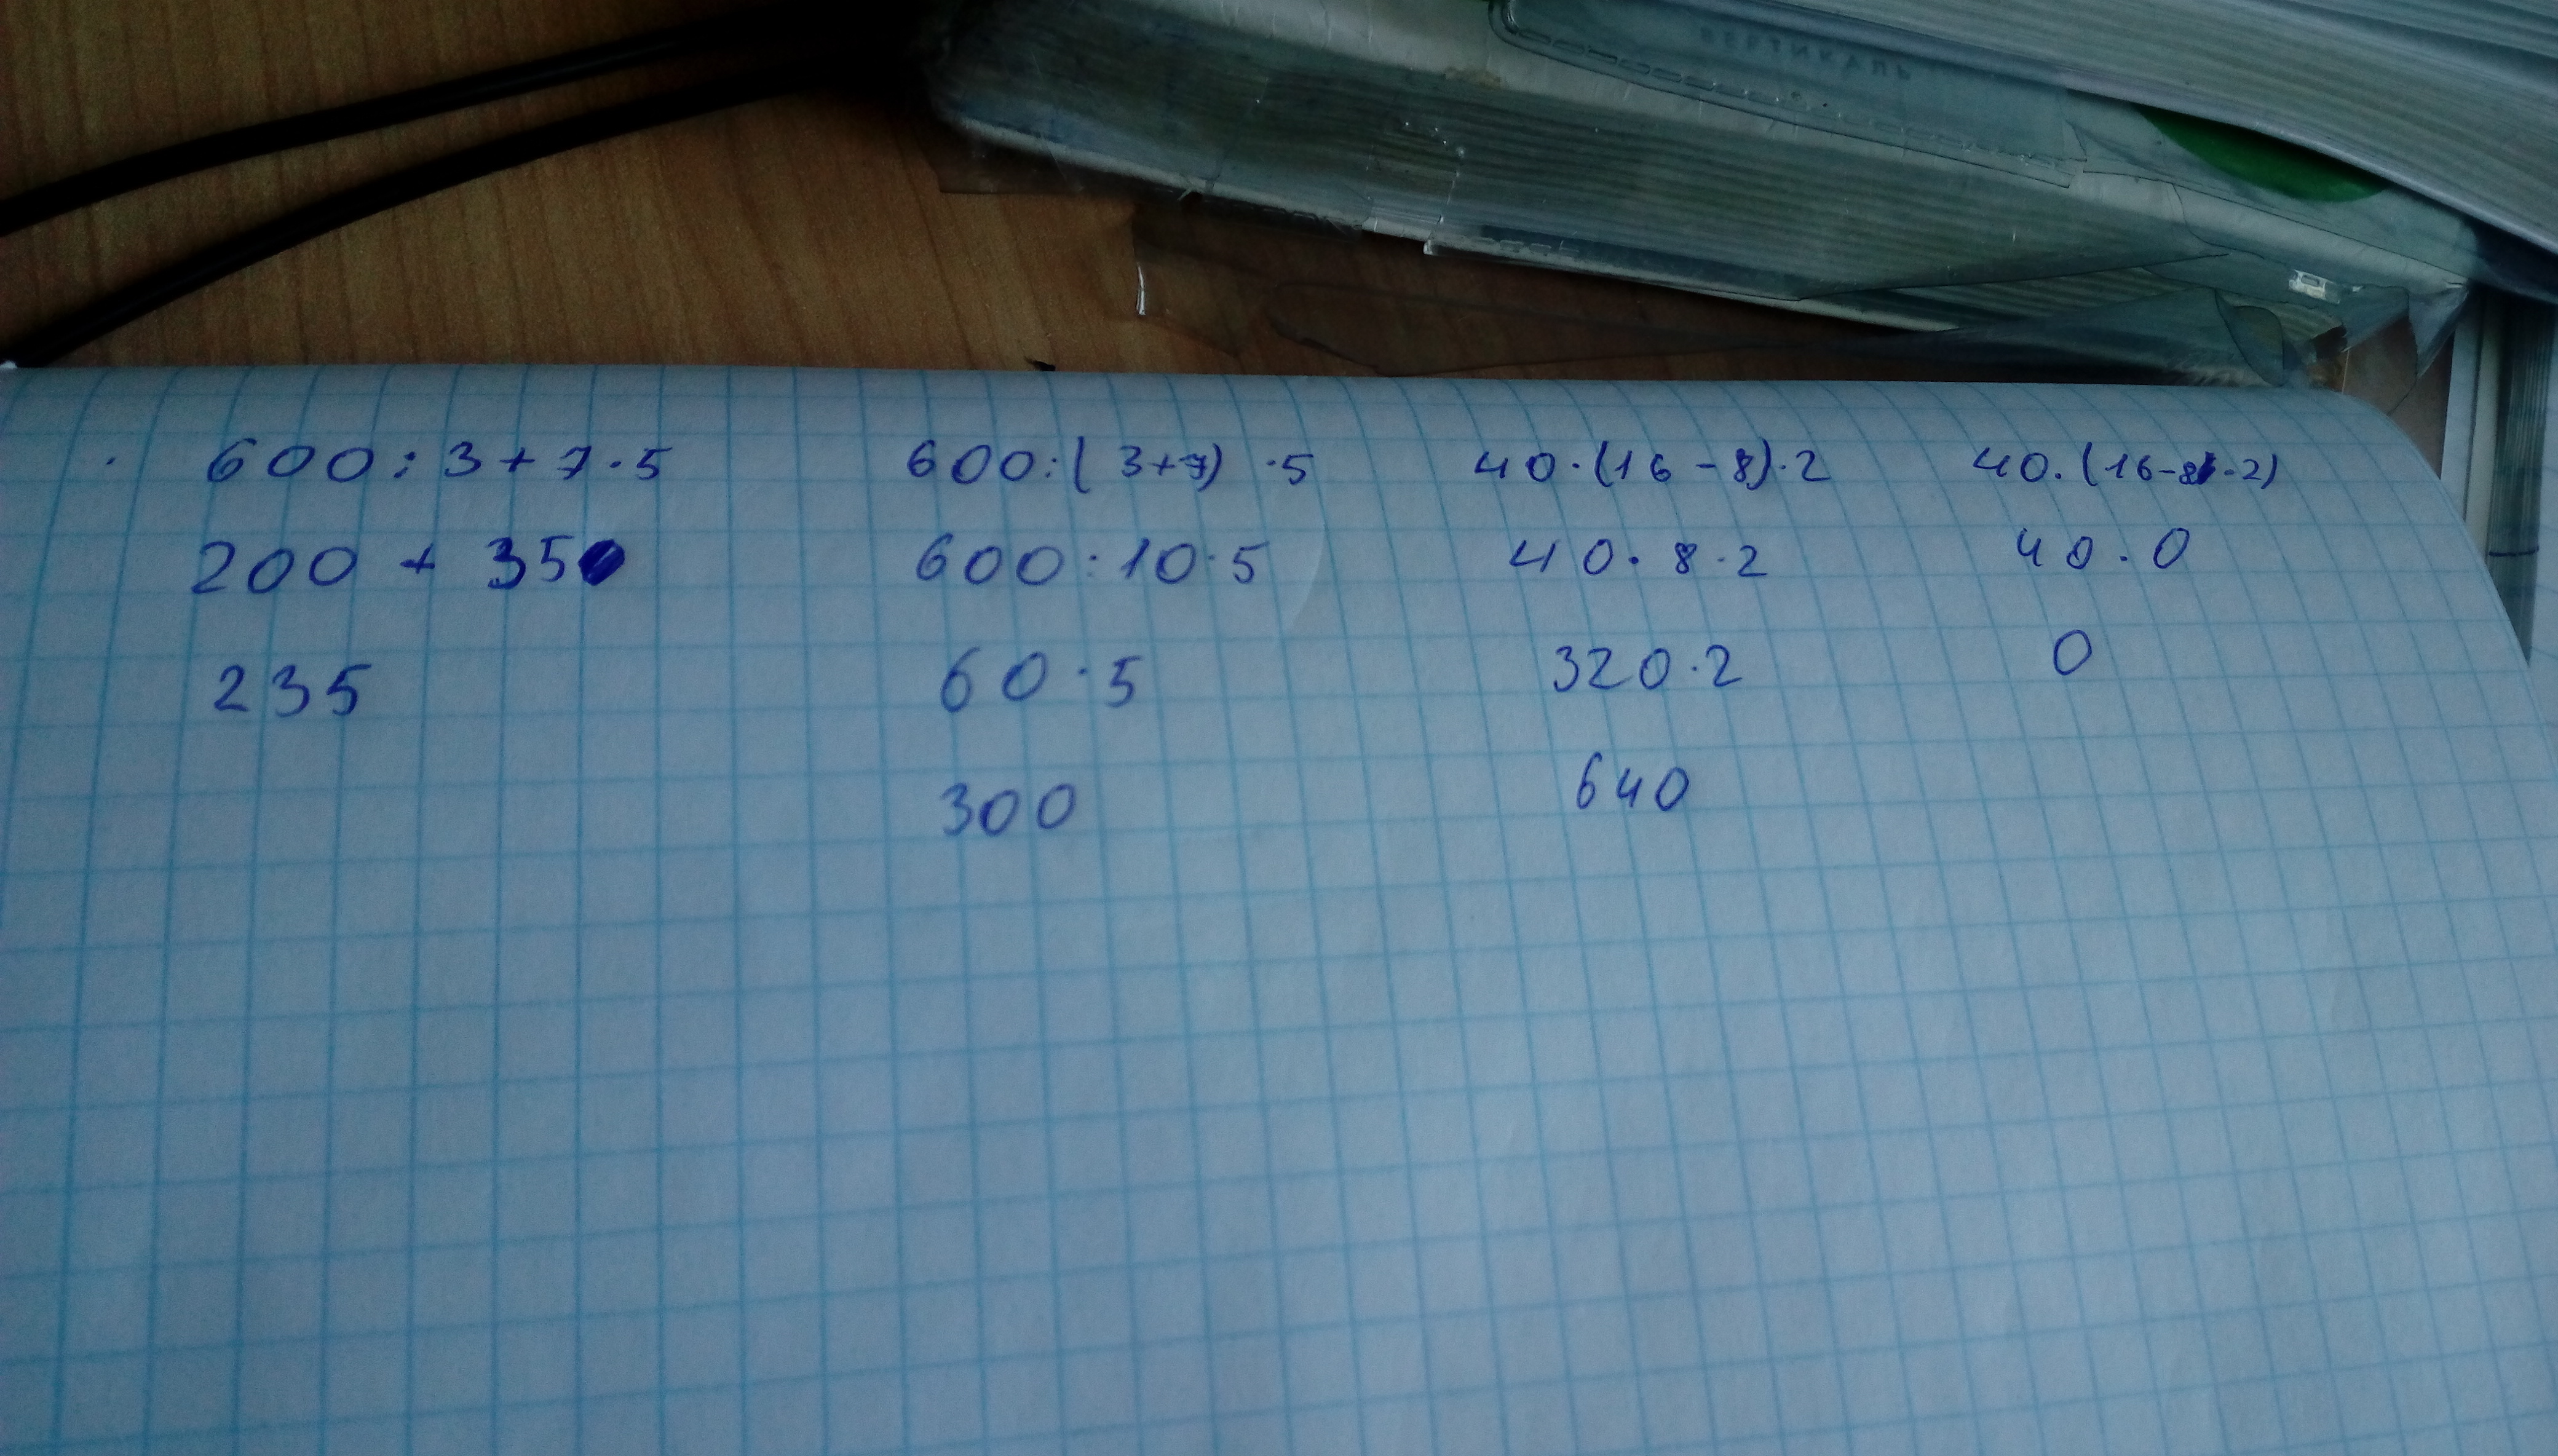 600:3+7·5
200+35
235
600:(3+7)·5
600:10·5
60·5
300
40·(16-8)·2
40·8·2
320·2
640
40·(16-8·2)
40·0
0